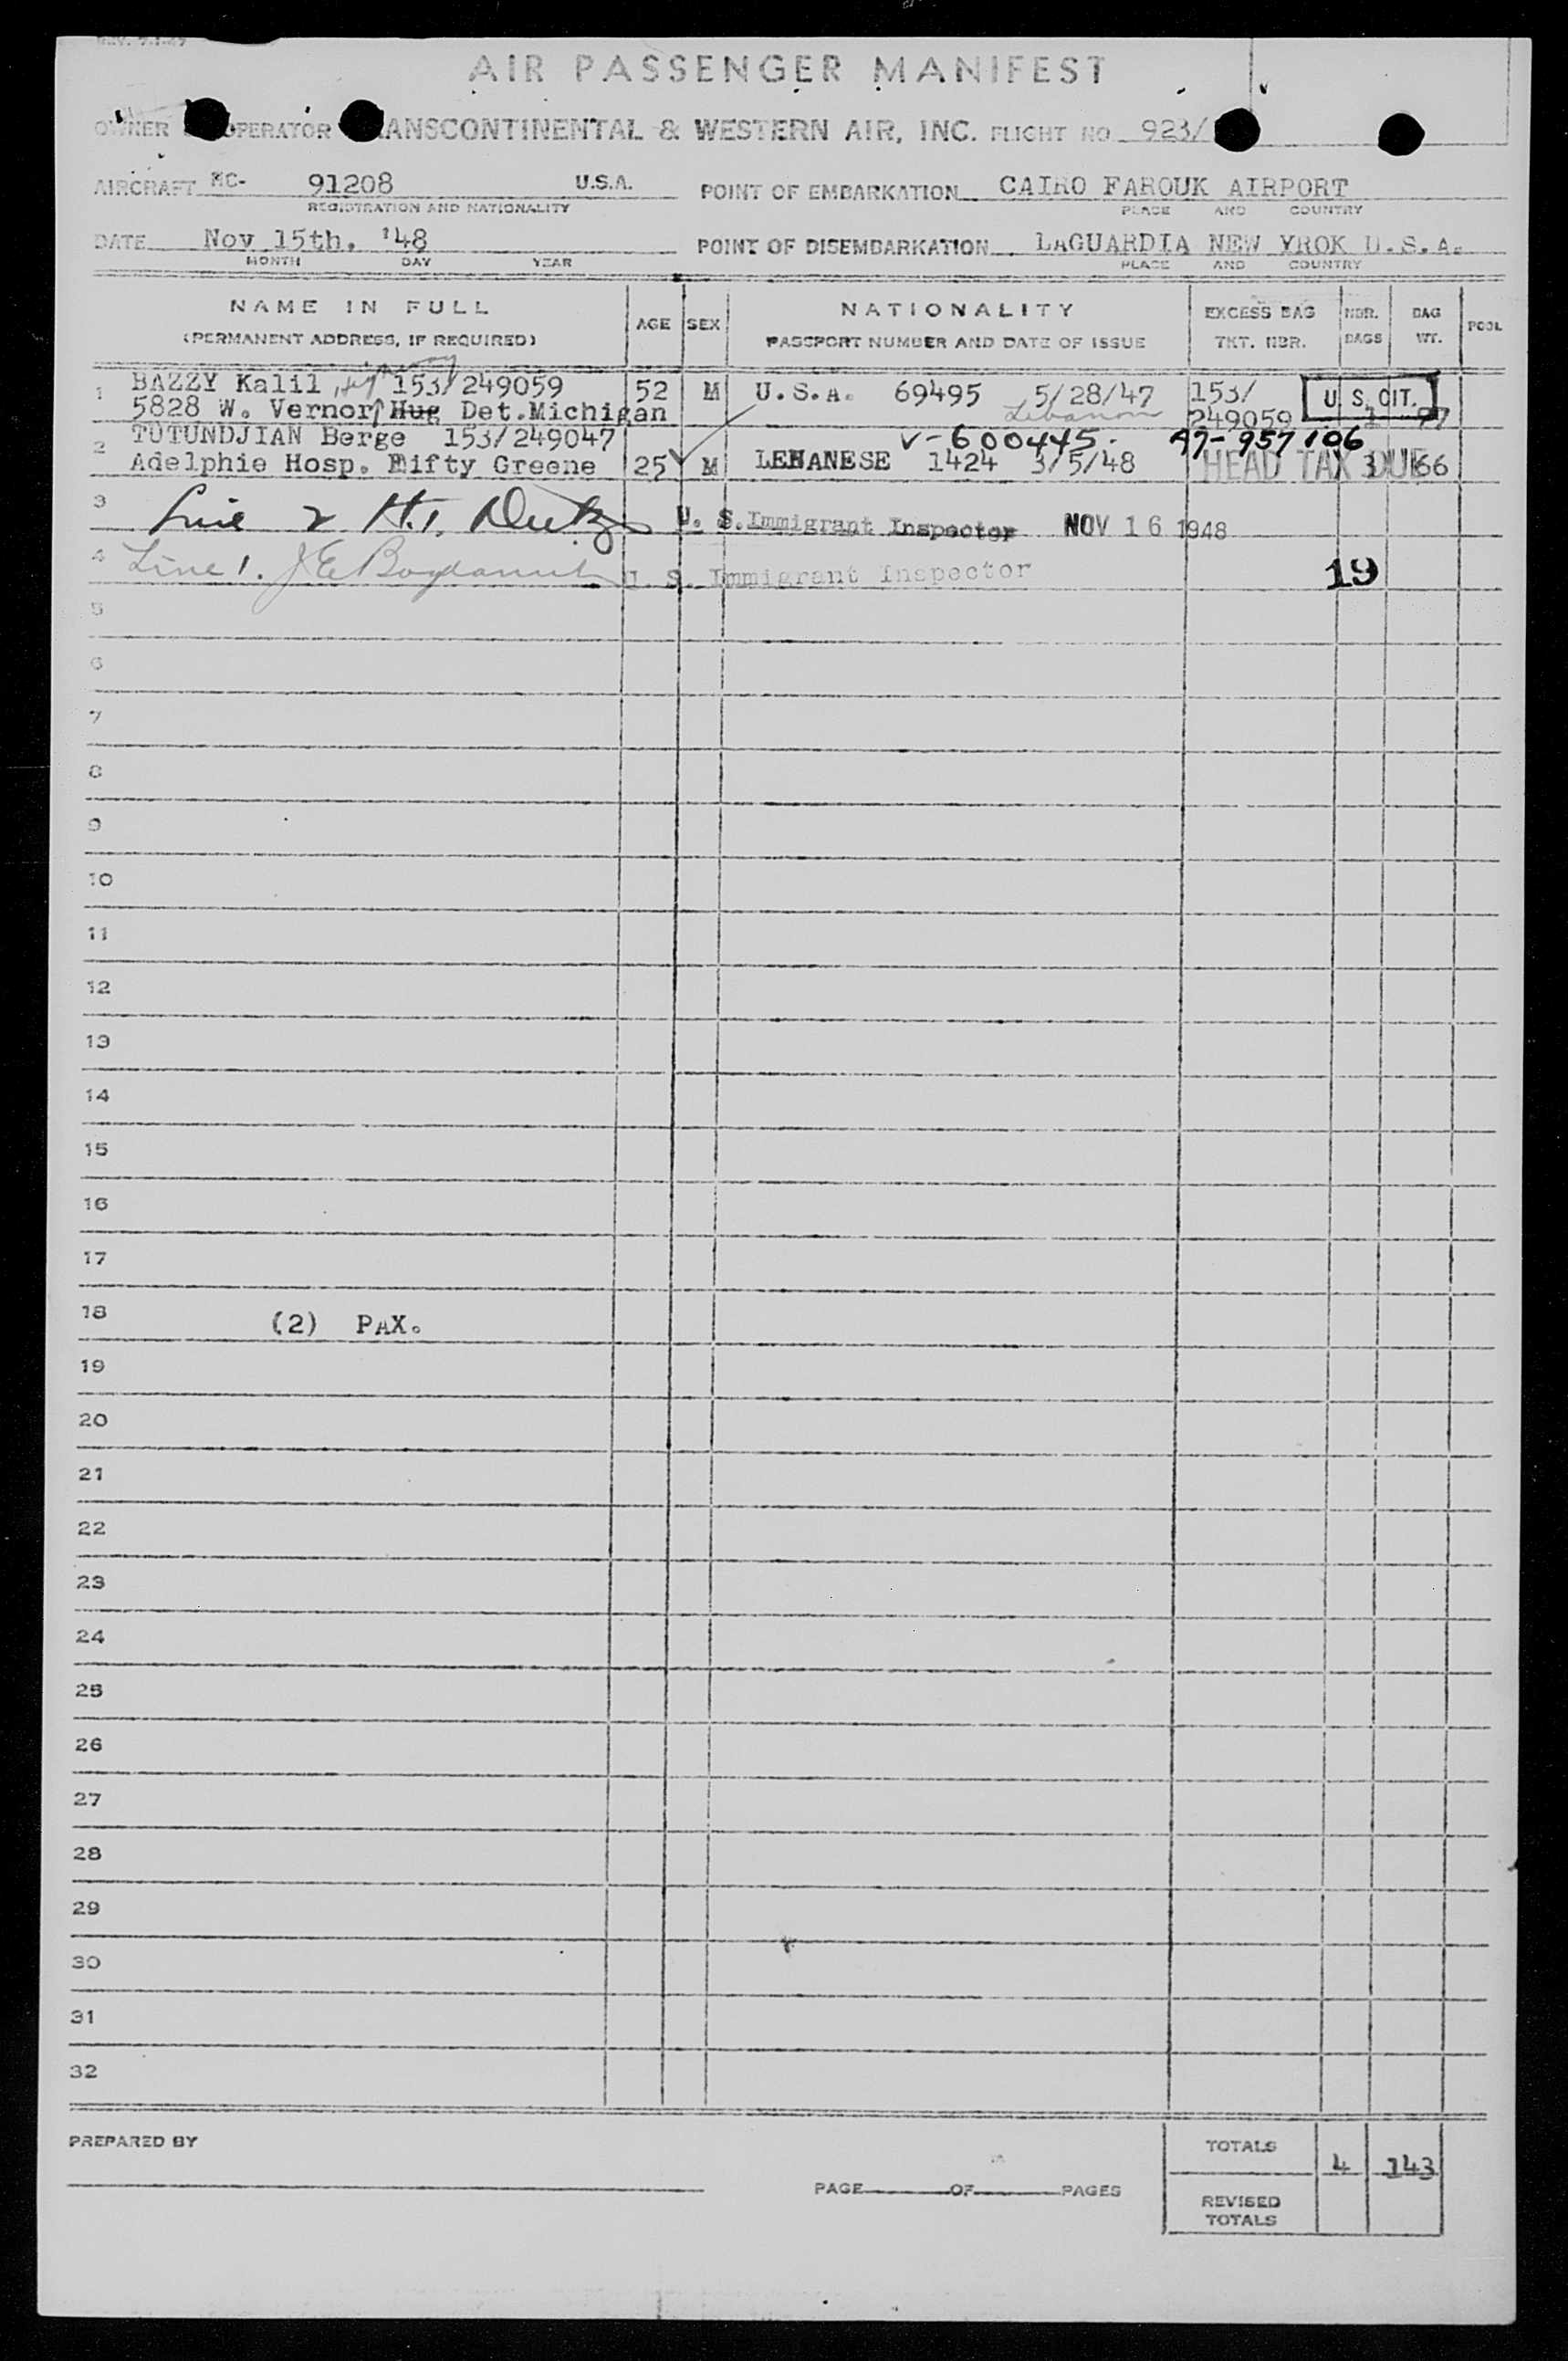 REV. 7-1-47
AIR PASSENGER MANIFEST
OWNER OPERATOR RANSCONTINENTAL & WESTERN AIR, INC. FLIGHT NO. 923/
AIRCRAFT NC- 91208 U.S.A. POINT OF EMBARKATION CAIRO FAROUK AIRPORT
REGISTRATION AND NATIONALITY PLACE AND COUNTRY
DATE Nov 15th. '48 POINT OF DISEMBARKATION LAGUARDIA NEW YROK U.S.A.
MONTH DAY YEAR PLACE AND COUNTRY
NAME IN FULL AGE SEX NATIONALITY EXCESS BAG NBR. BAG POOL
(PERMANENT ADDRESS, IF REQUIRED) PASSPORT NUMBER AND DATE OF ISSUE TKT. NBR. BAGS WT.
1 BAZZY Kalil 153/249059 52 M U.S.A. 69495 5/28/47 153/ U.S. CIT.
5828 W. Vernor Hug Det.Michigan Lebanon 249059 1 77
2 TUTUNDJIAN Berge 153/249047 V-600445. A7-957106
Adelphie Hosp. Fifty Greene 25 M LEBANESE 1424 3/5/48 HEAD TAX DUE 3 66
3 Line 2 H. U. S. Immigrant Inspector NOV 16 1948
4 Line 1. J E U. S. Immigrant Inspector 19
5
6
7
8
9
10
11
12
13
14
15
16
17
18 (2) PAX.
19
20
21
22
23
24
25
26
27
28
29
30
31
32
PREPARED BY TOTALS 4 143
PAGE OF PAGES
REVISED
TOTALS